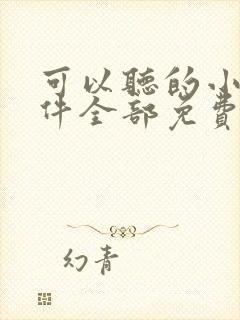 可以聽的小
件全部免費
幻青